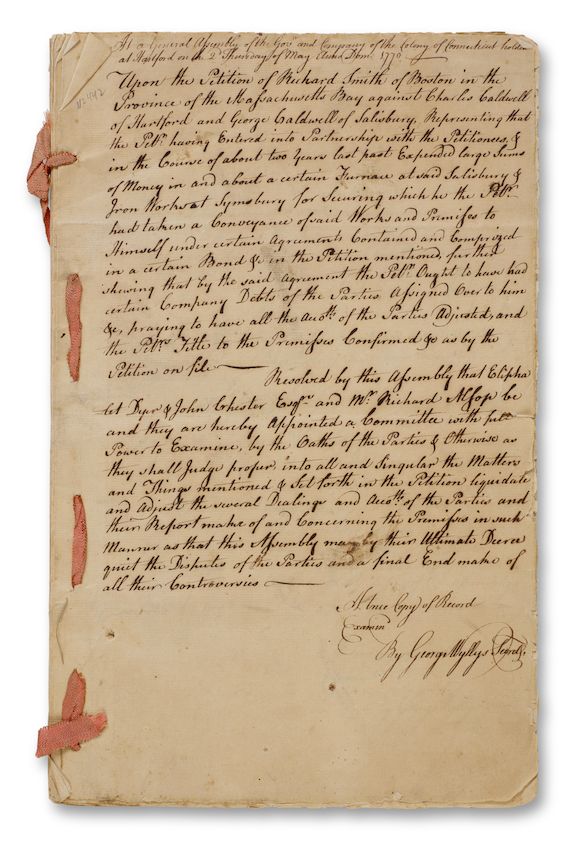 At a General Assembly of the Govr. and Company of the Colony of Connecticut holden
at Hartford on the 2d Thursday of May Anno Dom. 1770
Upon the Petition of Richard Smith of Boston in the
Province of the Massachusetts Bay against Charles Caldwell
of Hartford and George Caldwell of Salisbury, Representing that
the Petr. having Entered into Partnership with the Petitionees, &
in the Course of about two Years last past Expended large Sums
of Money in and about a certain Furnace at said Salisbury &
Iron Works at Symsbury for Securing which he the Petr.
had taken a Conveyance of said Works and Premises to
Himself under certain Agreements Contained and Comprized
in a certain Bond &c in the Petition mentioned, further
shewing that by the said Agreement the Petr. Ought to have had
certain Company Debts of the Parties Assigned Over to him
&c, praying to have all the Accots. of the Parties Adjusted, and
the Petrs. Title to the Premisses Confirmed &c as by the
Petition on file
Resolved by this Assembly that Elipha
let Dyer & John Chester Esqrs. and Mr. Richard Alsop be
and they are hereby Appointed a Committee with full
Power to Examine, by the Oaths of the Parties & Otherwise as
they shall Judge proper, into all and Singular the Matters
and Things mentioned & Set forth in the Petition liquidate
and Adjust the several Dealings and Accots. of the Parties and
their Report make of and Concerning the Premisses in such
Manner as that this Assembly may by their Ultimate Decree
quiet the Disputes of the Parties and a final End make of
all their Controversies
A true Copy of Record
Examind
By George Wyllys Secrety.